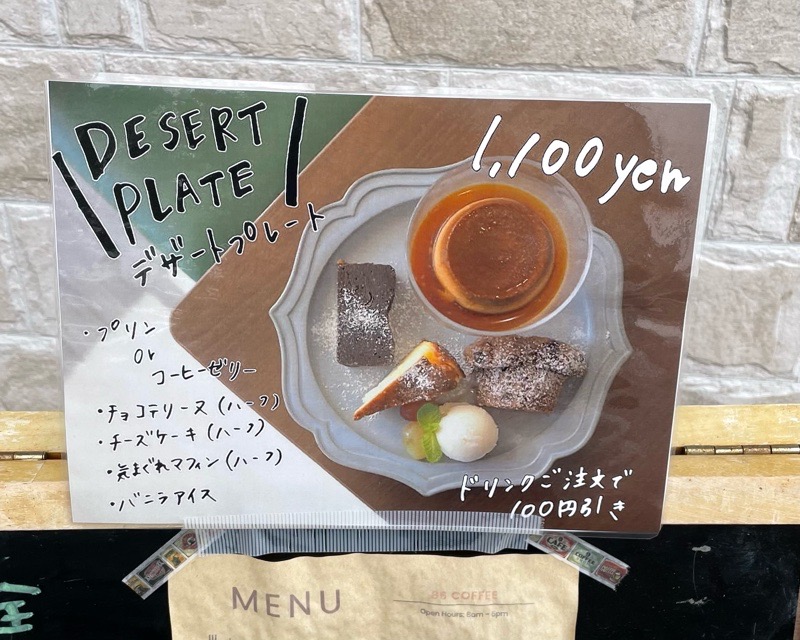 DESERT
PLATE
デザートプレート
1,100yen
・プリン
or
コーヒーゼリー
・チョコテリーヌ(ハーフ)
・チーズケーキ(ハーフ)
・気まぐれマフィン(ハーフ)
・バニラアイス
ドリンクご注文で
100円引き
MENU
88 COFFEE
Open Hours: 8am – 5pm